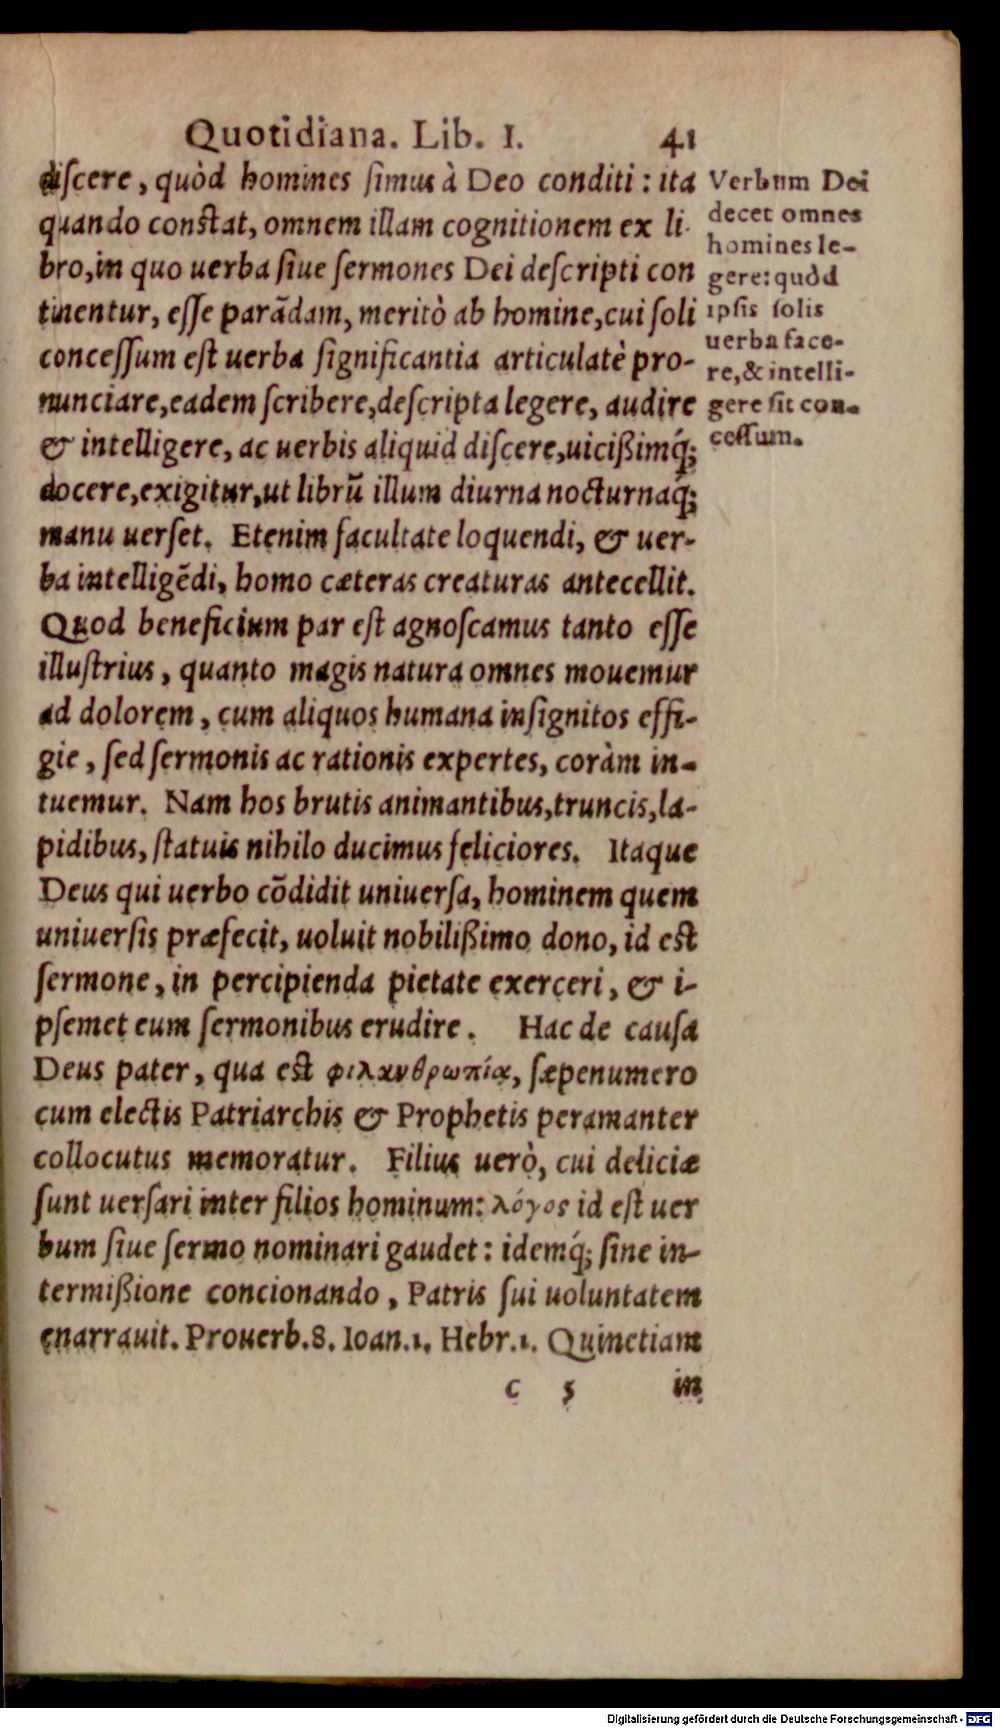 Quotidiana. Lib. I. 41
discere, quòd homines simus à Deo conditi: ita
quando constat, omnem illam cognitionem ex li-
bro, in quo uerba siue sermones Dei descripti con
tinentur, esse parādam, meritò ab homine, cui soli
concessum est uerba significantia articulatè pro-
nunciare, eadem scribere, descripta legere, audire
& intelligere, ac uerbis aliquid discere, uicißimq́;
docere, exigitur, ut librū illum diurna nocturnaq́;
manu uerset. Etenim facultate loquendi, & uer-
ba intelligēdi, homo cæteras creaturas antecellit.
Quod beneficium par est agnoscamus tanto esse
illustrius, quanto magis natura omnes mouemur
ad dolorem, cum aliquos humana insignitos effi-
gie, sed sermonis ac rationis expertes, coràm in-
tuemur. Nam hos brutis animantibus, truncis, la-
pidibus, statuis nihilo ducimus feliciores. Itaque
Deus qui uerbo cōdidit uniuersa, hominem quem
uniuersis præfecit, uoluit nobilißimo dono, id est
sermone, in percipienda pietate exerceri, & i-
psemet eum sermonibus erudire. Hac de causa
Deus pater, qua est φιλανθρωπία, sæpenumero
cum electis Patriarchis & Prophetis peramanter
collocutus memoratur. Filius uerò, cui deliciæ
sunt uersari inter filios hominum: λόγος id est uer
bum siue sermo nominari gaudet: idemq́; sine in-
termißione concionando, Patris sui uoluntatem
enarrauit. Prouerb.8. Ioan.1. Hebr.1. Quinetiam
c 5 in
Verbum Dei
decet omnes
homines le-
gere: quòd
ipsis solis
uerba face-
re, & intelli-
gere sit con-
cessum.
Digitalisierung gefördert durch die Deutsche Forschungsgemeinschaft - DFG